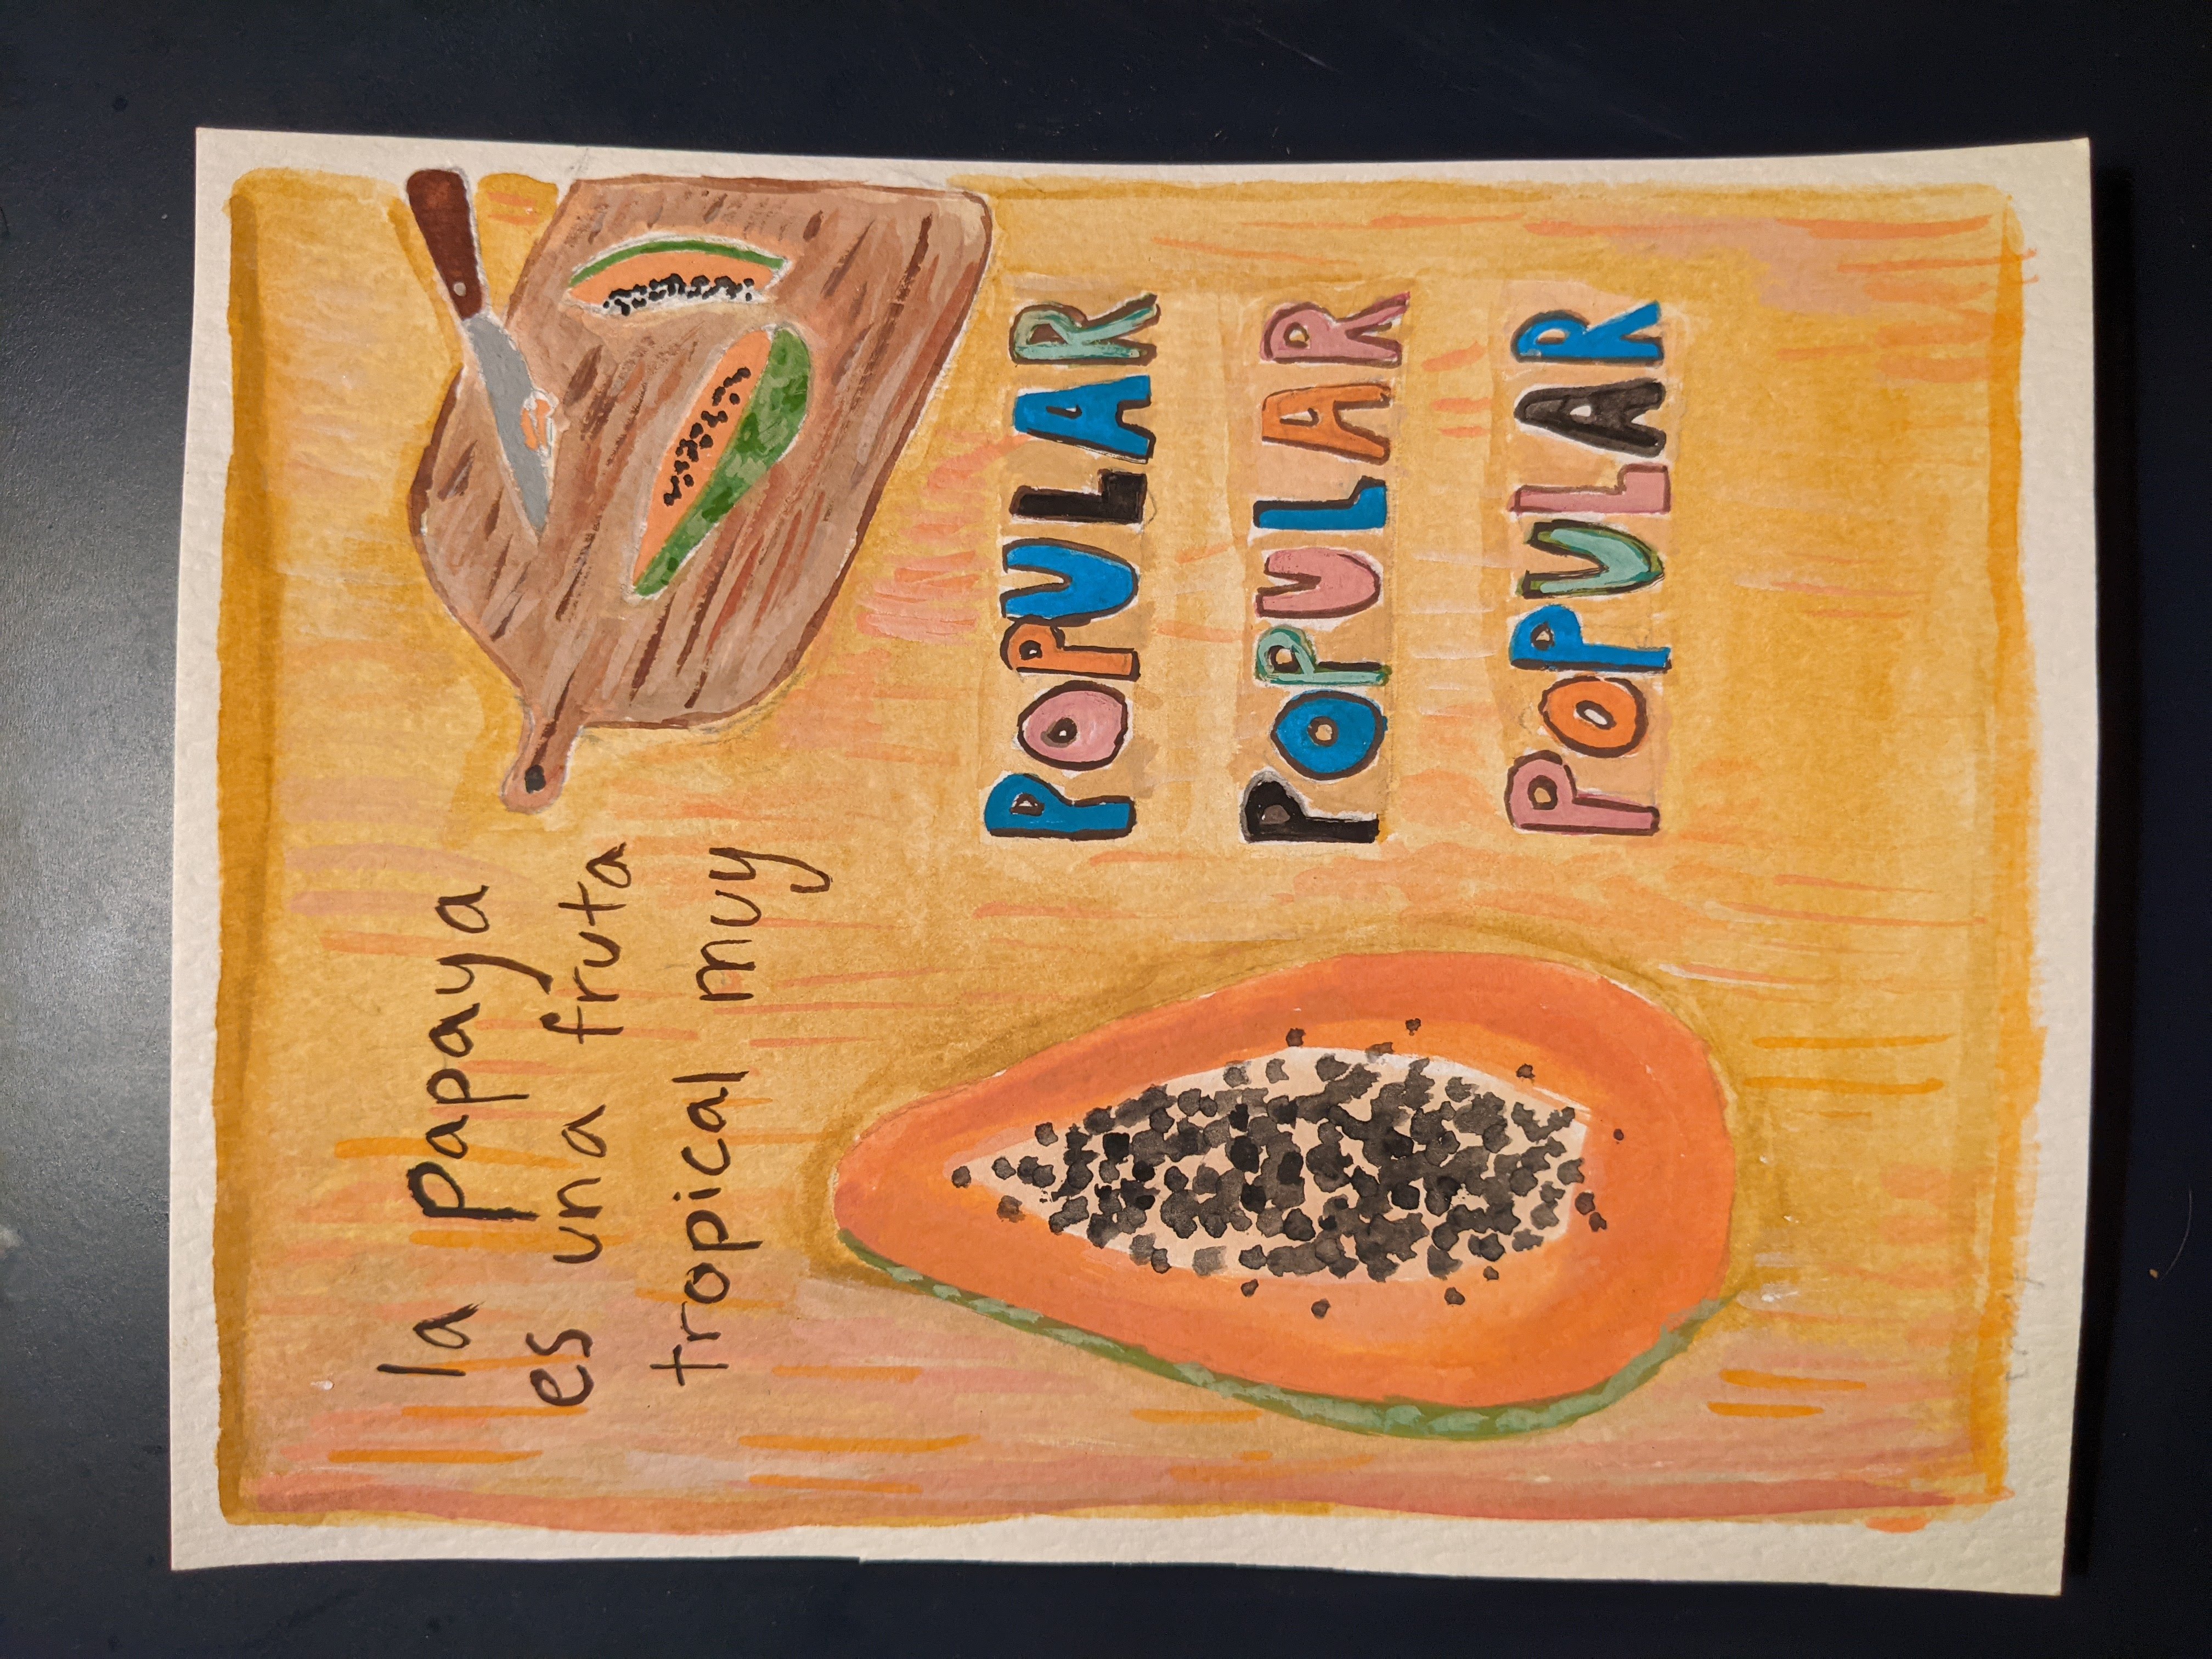 la papaya
es una fruta
tropical muy
POPULAR
POPULAR
POPULAR